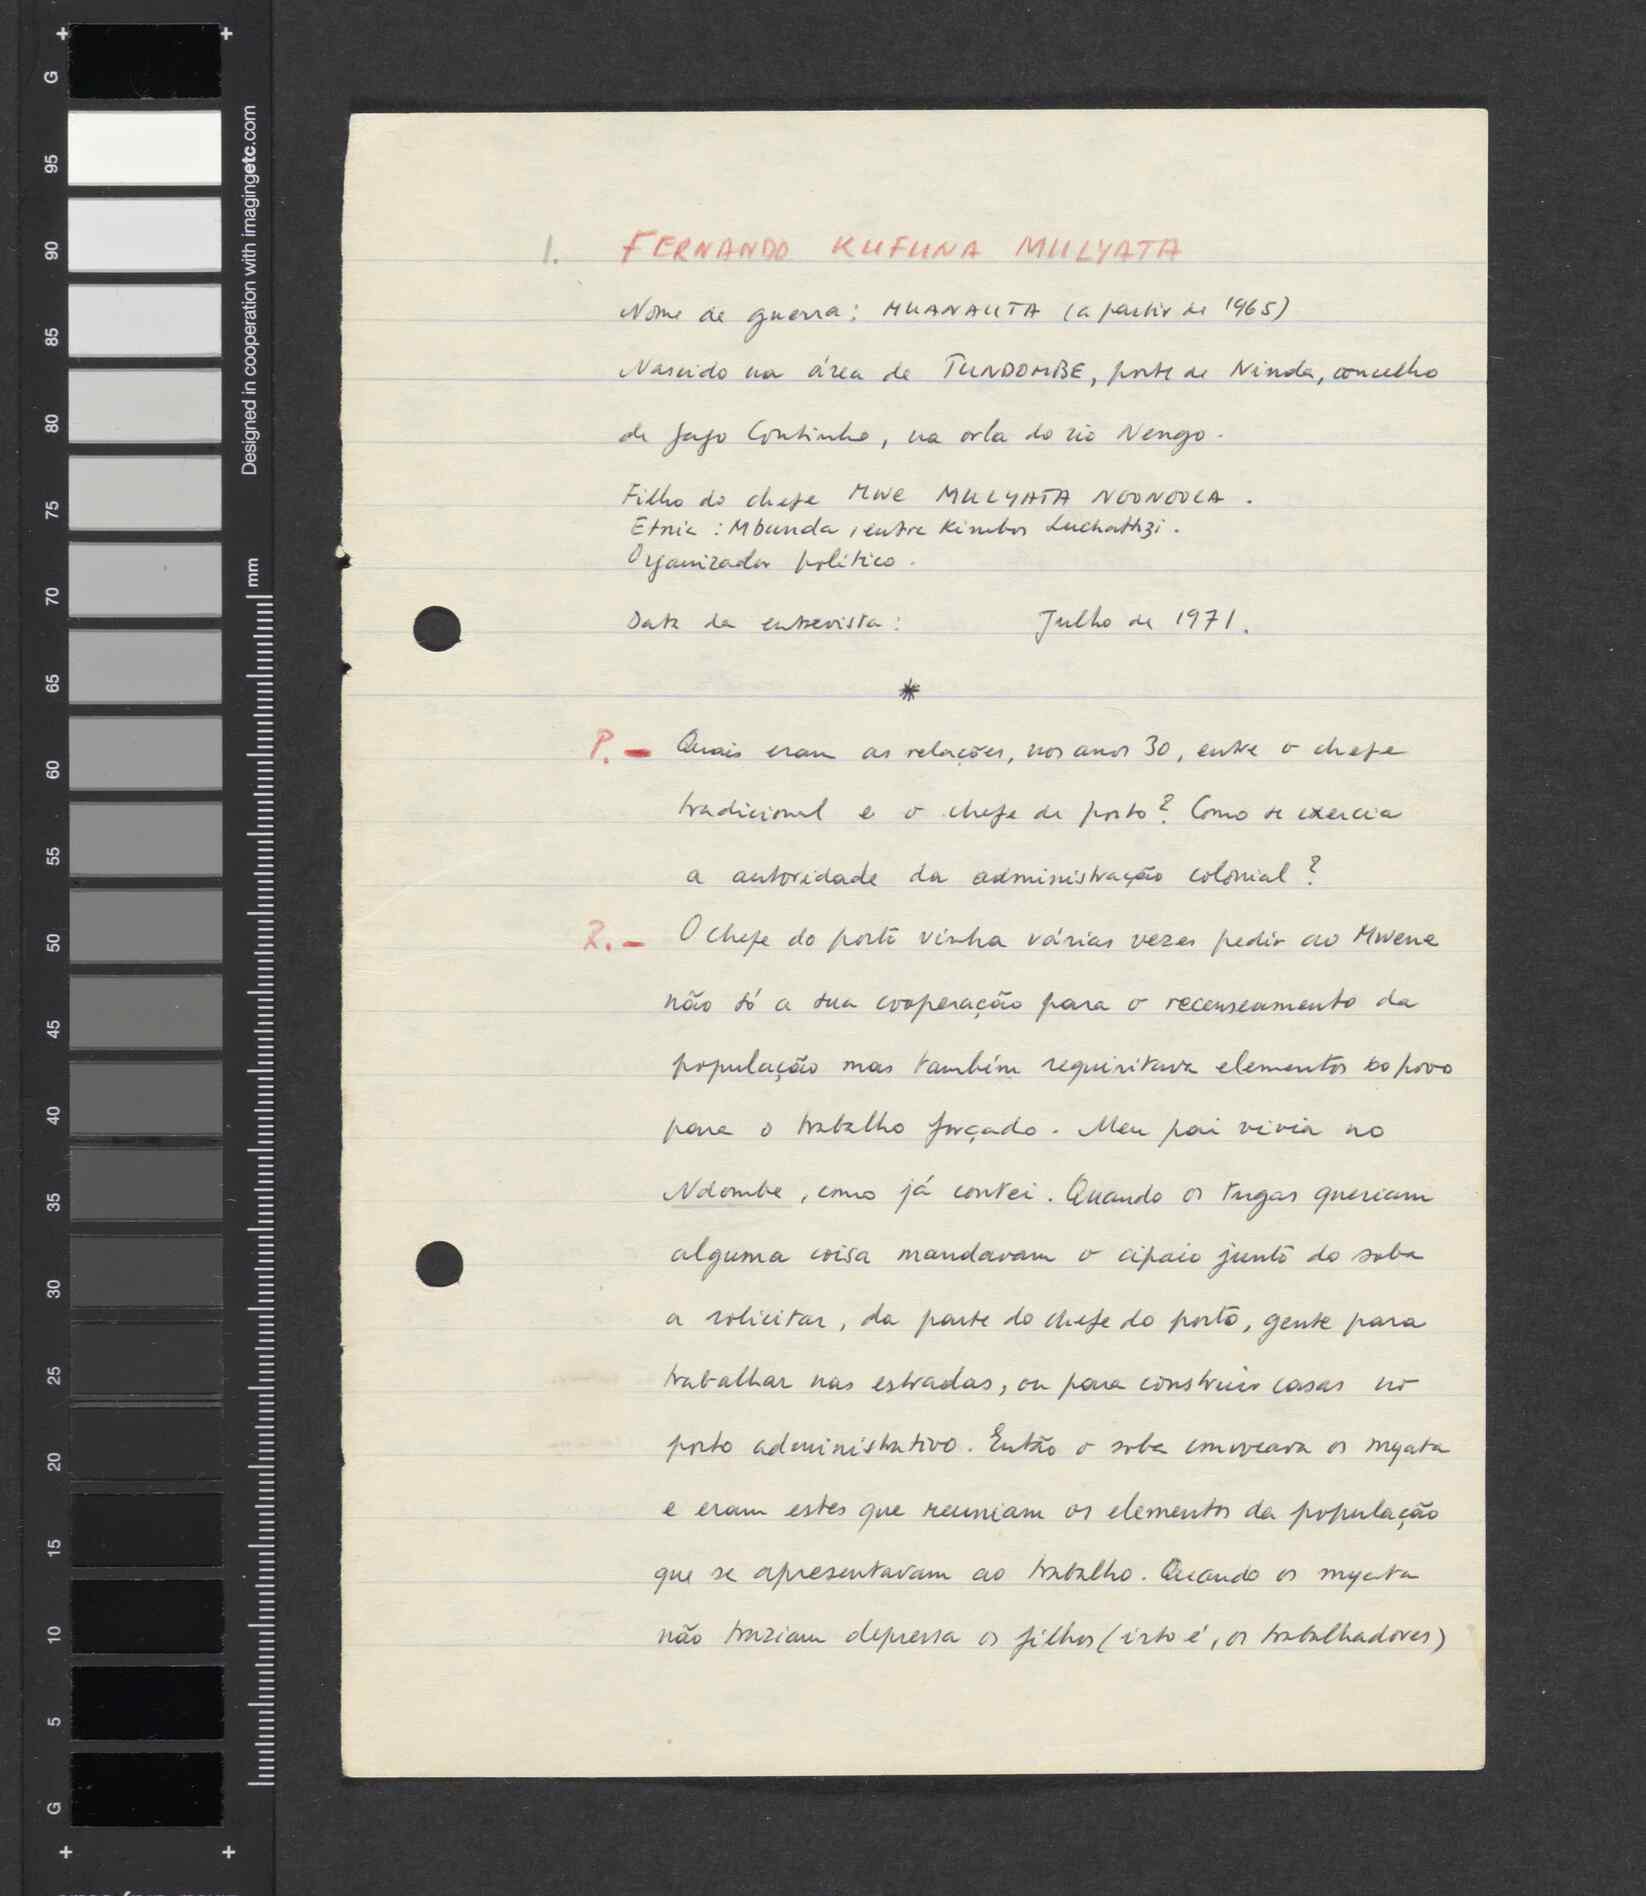 G
95
90
85
80
75
70
65
60
55
50
45
40
35
30
25
20
15
10
5
G
Designed in cooperation with imagingetc.com
mm
1. FERNANDO KUFUNA MULYATA
Nome de guerra: MUANAUTA (a partir de 1965)
Nascido na área de TUNDOMBE, posto de Ninda, concelho
de Gago Coutinho, na orla do rio Nengo.
Filho do chefe MWE MULYATA NDONDOLA.
Etnia: Mbunda, entre Kimbos Luchathzi.
Organizador político.
Data da entrevista: Julho de 1971.
*
P.- Quais eram as relações, nos anos 30, entre o chefe
tradicional e o chefe de posto? Como se exercia
a autoridade da administração colonial?
R.- O chefe do posto vinha várias vezes pedir ao Mwene
não só a sua cooperação para o recenseamento da
população mas também requisitava elementos do povo
para o trabalho forçado. Meu pai vivia no
Ndombe, como já contei. Quando os tugas queriam
alguma coisa mandavam o cipaio junto do soba
a solicitar, da parte do chefe do posto, gente para
trabalhar nas estradas, ou para construir casas no
posto administrativo. Então o soba convocava os myata
e eram estes que reuniam os elementos da população
que se apresentavam ao trabalho. Quando os myata
não traziam depressa os filhos (isto é, os trabalhadores)